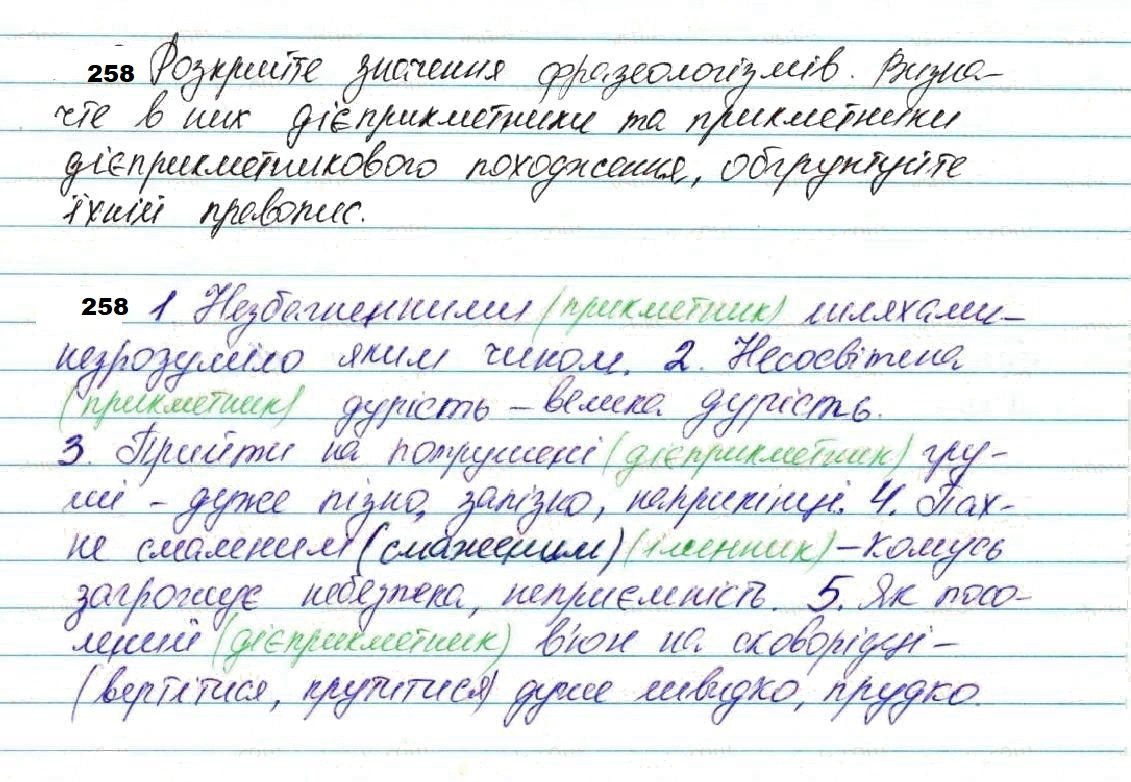 258 Розкрийте значення фразеологізмів. Визна-
чте в них дієприкметники та прикметники
дієприкметникового походження, обґрунтуйте
їхній правопис.
258 1 Незбагненними (прикметник) шляхами-
незрозуміло яким чином. 2. Неосвітена
(прикметник) дурість – велика дурість.
3. Прийти на потрушені (дієприкметник) гру-
ші – дуже пізно, запізно, наприкінці. 4. Пах-
не смаленим (смаженим) (іменник) – комусь
загрожує небезпека, неприємність. 5. Як посо-
лений (дієприкметник) в'юн на сковорідці –
(вертітися, прутитися) дуже швидко, прудко.